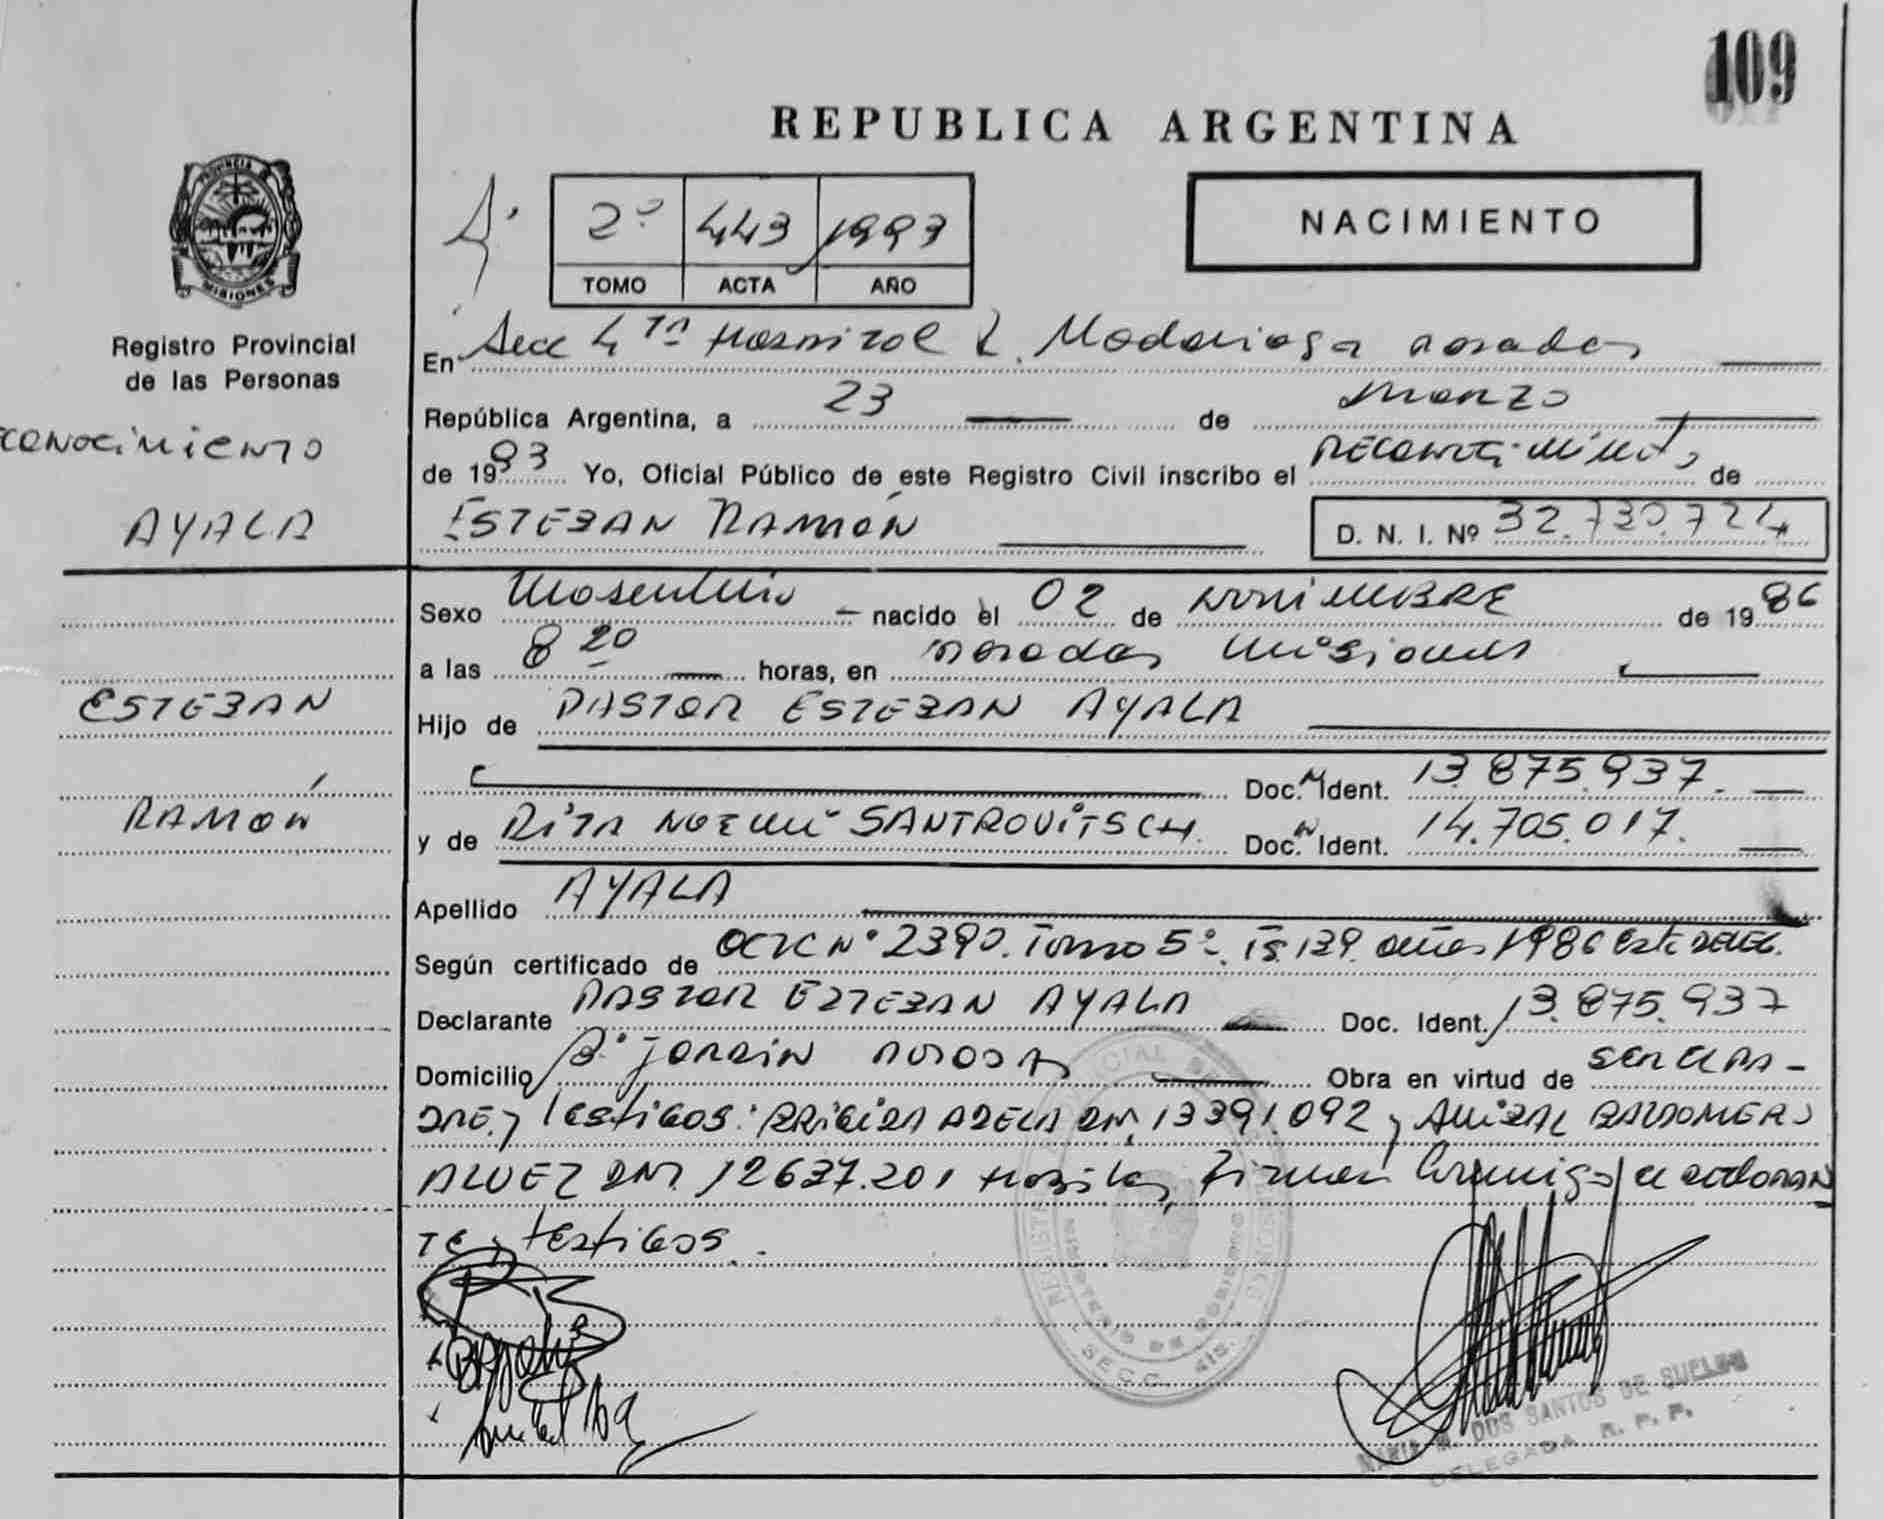 109
REPUBLICA ARGENTINA
2º 443 1993
TOMO ACTA AÑO
NACIMIENTO
PROVINCIA
MISIONES
Registro Provincial
de las Personas
En Secc 4ta Hospital R. Madariaga Posadas
República Argentina, a 23 de Marzo
conocimiento
de 1993 Yo, Oficial Público de este Registro Civil inscribo el Reconocimiento de
AYALA
ESTEBAN RAMÓN D. N. I. Nº 32.730.724
Sexo Masculino nacido el 02 de NOVIEMBRE de 1986
a las 8 20 horas, en Posadas Misiones
ESTEBAN
Hijo de PASTOR ESTEBAN AYALA
Doc. Ident. 13.875.937.
RAMÓN
y de RITA NOEMI SANTROVITSCH. Doc. Ident. 14.705.017.
Apellido AYALA
Según certificado de Nº 2390. Tomo 5º. 139. 1986 Este DELEG.
Declarante PASTOR ESTEBAN AYALA Doc. Ident. 13.875.937
Domicilio Bº JARDIN POSADAS Obra en virtud de SER EL PA-
DRE y Testigos: BRIGIDA ADELA 13391.092 y ANIBAL BALDOMERO
ALVEZ 12637.201 Habiles, Firman Conmigo el declaran
TE y testigos.
REGISTRO PROVINCIAL DE LAS PERSONAS
MINISTERIO DE GOBIERNO
SECC.
MARIA M. DOS SANTOS DE
DELEGADA R. P. P.